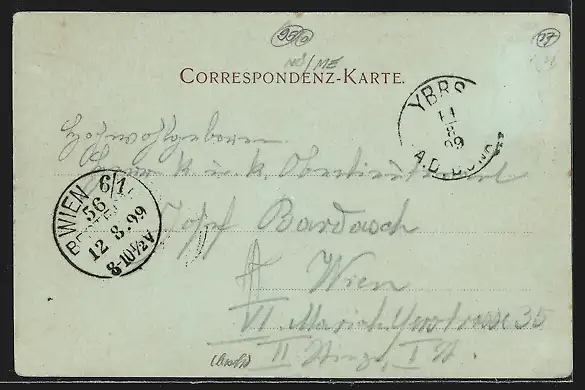 NÖ/ME
17
CORRESPONDENZ-KARTE.
YBBS
11 8 99
A.D. DONAU
Hochwohlgeboren
Herrn k. u. k. Oberlieutenant
Josef Bardasch
Wien
VI Mariahilferstrasse 35
II Stiege, I St.
WIEN 6/1
56
12 8.99
8-10½V